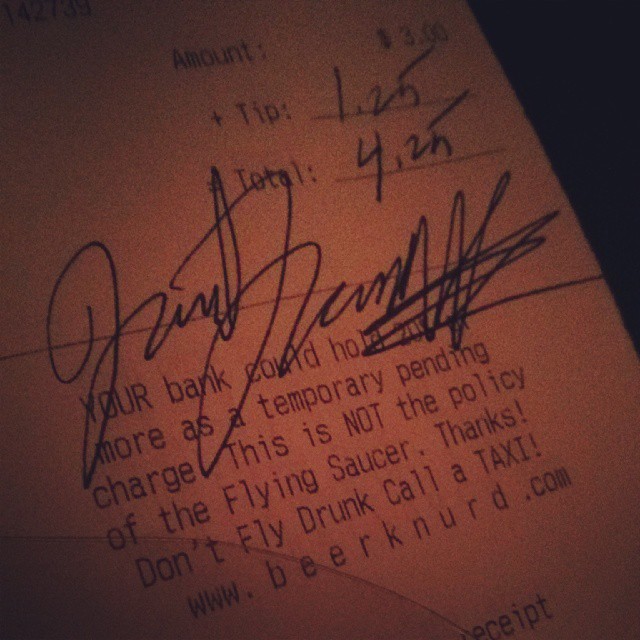 142739
Amount: $ 3.00
+ Tip: 1.25
= Total: 4.25
YOUR bank could hold
more as a temporary pending
charge. This is NOT the policy
of the Flying Saucer. Thanks!
Don't Fly Drunk Call a TAXI!
www.beerknurd.com
receipt